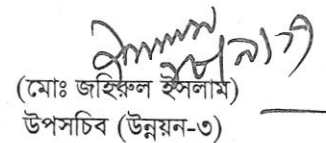 (মোঃ জহিরুল ইসলাম)
উপসচিব (উন্নয়ন-৩)